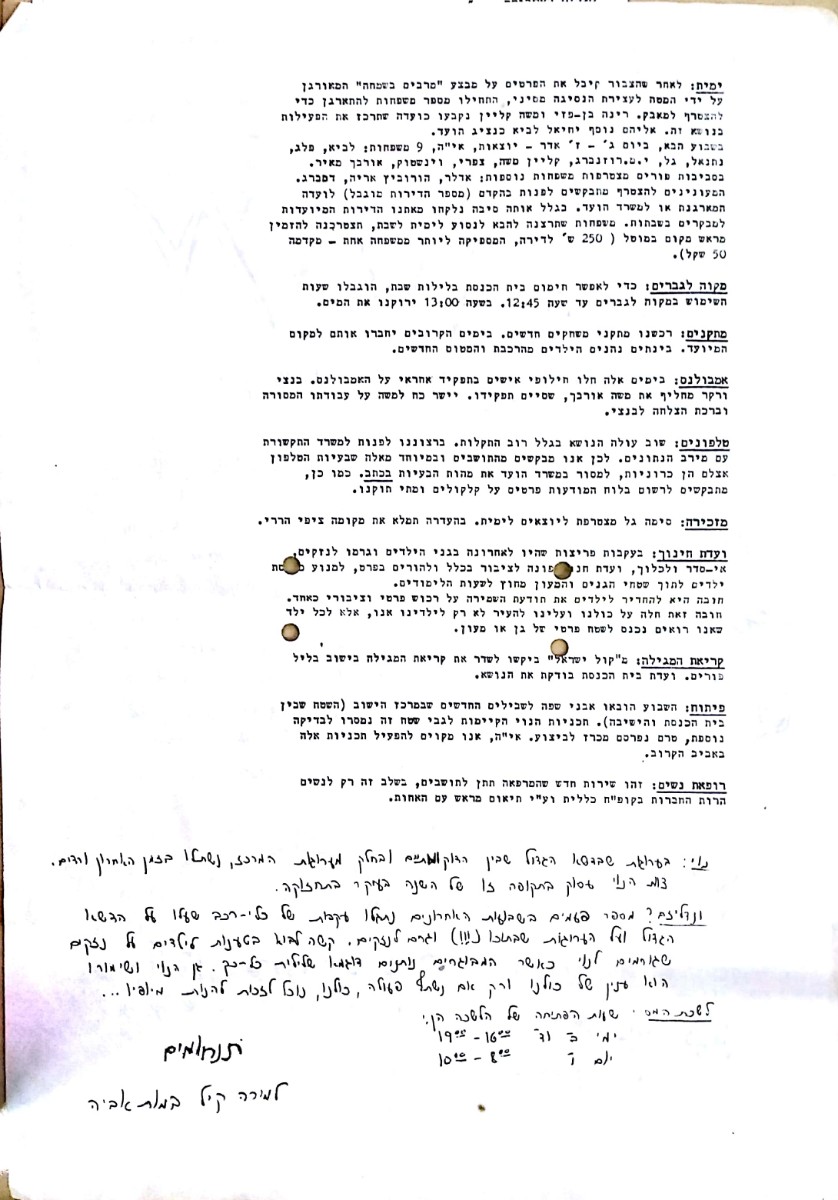 ימית: לאחר שהצבור קיבל את הפרטים על מבצע "מרבים בשמחה" המאורגן
על ידי המטה לעצירת הנסיגה מסיני, התחילו מספר משפחות להתארגן כדי
להצטרף למאבק. רינה בן-פזי ומשה קליין נקבעו כועדה שתרכז את הפעילות
בנושא זה. אליהם נוסף יחיאל לביא כנציג הועד.
בשבוע הבא, ביום ג' - ז' אדר - יוצאות, אי"ה, 9 משפחות: לביא, פלג,
נתנאל, גל, י.מ.רוזנברג, קליין משה, צפרי, וינשטוק, אורבך מאיר.
בסביבות פורים מצטרפות משפחות נוספות: אדלר, הורוביץ אריה, דסברג.
המעונינים להצטרף מתבקשים לפנות בהקדם (מספר הדירות מוגבל) לועדה
המארגנת או למשרד הועד. בגלל אותה סיבה נלקחו מאתנו הדירות המיועדות
למבקרים בשבתות. משפחות שתרצנה להבא לנסוע לימית לשבת, תצטרכנה להזמין
מראש מקום במוטל ( 250 ש' לדירה, המספיקה ליותר ממשפחה אחת - מקדמה
50 שקל).
מקוה לגברים: כדי לאפשר חימום בית הכנסת בלילות שבת, הוגבלו שעות
השימוש במקוה לגברים עד שעה 12:45. בשעה 13:00 ירוקנו את המים.
מתקנים: רכשנו מתקני משחקים חדשים. בימים הקרובים יחברו אותם למקום
המיועד. בינתים נהנים הילדים מהרכבת והמטוס החדשים.
אמבולנס: בימים אלה חלו חילופי אישים בתפקיד אחראי על האמבולנס. בנצי
ורקר מחליף את משה אורבך, שסיים תפקידו. יישר כח למשה על עבודתו המסורה
וברכת הצלחה לבנצי.
טלפונים: שוב עולה הנושא בגלל רוב התקלות. ברצוננו לפנות למשרד התקשורת
עם מירב הנתונים. לכן אנו מבקשים מהתושבים ובמיוחד מאלה שבעיות הטלפון
אצלם הן כרוניות, למסור במשרד הועד את מהות הבעיות בכתב. כמו כן,
מתבקשים לרשום בלוח המודעות פרטים על קלקולים ומתי תוקנו.
מזכירה: סימה גל מצטרפת ליוצאים לימית. בהעדרה תמלא את מקומה ציפי הררי.
ועדת חינוך: בעקבות פריצות שהיו לאחרונה בגני הילדים וגרמו לנזקים,
אי-סדר ולכלוך, ועדת פונה לציבור בכלל ולהורים בפרט, למנוע
ילדים לתוך שטחי הגנים והמעון מחוץ לשעות הלימודים.
חובה היא להחדיר לילדים את תודעת השמירה על רכוש פרטי וציבורי כאחד.
חובה זאת חלה על כולנו ועלינו להעיר לא רק לילדינו אנו, אלא לכל ילד
שאנו רואים נכנס לשטח פרטי של גן או מעון.
קריאת המגילה: מ"קול ישראל" ביקשו לשדר את קריאת המגילה בישוב בליל
פורים. ועדת בית הכנסת בודקת את הנושא.
פיתוח: השבוע הובאו אבני שפה לשבילים החדשים שבמרכז הישוב (השטח שבין
בית הכנסת והישיבה). תכניות הנוי הקיימות לגבי שטח זה נמסרו לבדיקה
נוספת, טרם נפרסם מכרז לביצוע. אי"ה, אנו מקוים להפעיל תכניות אלה
באביב הקרוב.
רופאת נשים: זהו שירות חדש שהמרפאה תתן לתושבים, בשלב זה רק לנשים
הרות החברות בקופ"ח כללית וע"י תיאום מראש עם האחות.
נוי: בערוגות שבדשא הגדול שבין ובחלק מערוגות המרכז, נשתלו בזמן האחרון ורדים.
צוות הנוי עסוק בתקופה זו של השנה בעיקר בתחזוקה.
ונדליזם? מספר פעמים בשבועות האחרונים נתגלו עקבות של כלי-רכב שעלו על הדשא
הגדול ועל הערוגות שבתוכו (!!!) וגרם לנזקים. קשה לבוא בטענות לילדים על נזקים
שגורמים לנוי כאשר המבוגרים נותנים דוגמא שלילית כל-כך. גן הנוי ושימורו
הוא ענין של כולנו ורק אם נשתף פעולה, כולנו, נוכל לזכות להנות מיופיו...
לשכת המס שעות הפתיחה של הלשכה הן:
ימי ב' וד' 16⁰⁰ - 19⁰⁰
יום ו' 8⁰⁰ - 10⁰⁰
תנחומים